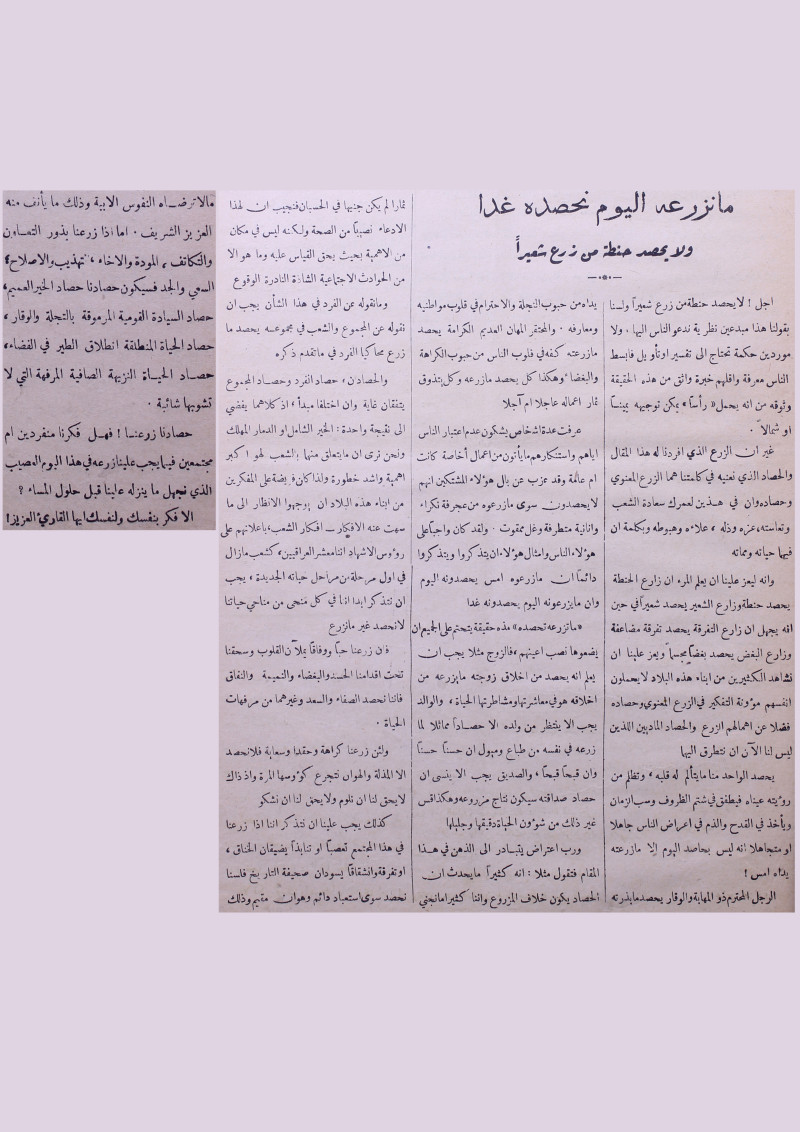 مانزرعه اليوم نحصده غدا
ولا يحصد حنطة من زرع شعيراً
اجل ! لا يحصد حنطة من زرع شعيراً ولسنا
بقولنا هذا مبدعين نظرية ندعو الناس اليها . ولا
موردين حكمة تحتاج الى تفسير او تأويل فابسط
الناس معرفة واقلهم خبرة واثق من هذه الحقيقة
وثوقه من انه يحمل «رأساً» يمكن توجيهه يميناً
او شمالاً .
غير ان الزرع الذي افردنا له هذا المقال
والحصاد الذي نعنيه في كلمتنا هما الزرع المعنوي
وحصاده وان في هذين لعمرك سعادة الشعب
وتعاسته ، عزه وذله ، علاءه وهبوطه وبكلمة ان
فيها حياته ومماته
وانه ليعز علينا ان يعلم المرء ان زارع الحنطة
يحصد حنطة وزارع الشعير يحصد شعيراً في حين
انه يجهل ان زارع التفرقة يحصد تفرقة مضاعفة
وزارع البغض يحصد بغضاً مجسماً ويعز علينا ان
نشاهد الكثيرين من ابناء هذه البلاد لا يحملون
انفسهم مؤونة التفكير في الزرع المعنوي وحصاده
فضلا عن اهمالهم الزرع والحصاد الماديين اللذين
ليس لنا الآن ان نتطرق اليها
يحصد الواحد منا ما يتألم له قلبه ، وتظلم من
رؤيته عيناه فيطفق في شتم الظروف وسب الزمان
ويأخذ في القدح والذم في اعراض الناس جاهلا
او متجاهلا انه ليس بحاصد اليوم إلا مازرعته
يداه امس !
الرجل المحترم ذو المهابة والوقار يحصد مابذرته
يداه من حبوب التجلة والاحترام في قلوب مواطنيه
ومعارفه . والمحتقر المهان العديم الكرامة يحصد
مازرعته كفه في قلوب الناس من حبوب الكراهة
والبغضاء وهكذا كل يحصد مازرعه وكل يتذوق
ثمار اعماله عاجلا ام آجلا
عرفت عدة اشخاص يشكون عدم اعتبار الناس
اياهم واستنكارهم مايأتون من اعمال أخاصة كانت
ام عامة وقد عزب عن بال هؤلاء المشتكين انهم
لايحصدون سوى مازرعوه من عجرفة نكراء
وانانية متطرفة وغل ممقوت . ولقد كان واجباً على
هؤلاء الناس وامثال هؤلاء ان يتذكروا ويتذكروا
دائماً ان مازرعوه امس يحصدونه اليوم
وان مايزرعونه اليوم يحصدونه غدا
«ماتزرعه تحصده» هذه حقيقة يتحتم على الجميع ان
يضعوها نصب اعينهم ، فالزوج مثلا يجب ان
يعلم انه يحصد من اخلاق زوجته مايزرعه من
اخلاقه هو في معاشرتها ومشاطرتها الحياة ، والوالد
يجب الا ينتظر من ولده الا حصاداً مماثلا لما
زرعه في نفسه من طباع وميول ان حسناً حسناً
وان قبحاً قبحاً ، والصديق يجب الا ينسى ان
حصاد صداقته سيكون نتاج مزروعه وهكذا قس
غير ذلك من شؤون الحياة دقيقها وجليلها
ورب اعتراض يتبادر الى الذهن في هذا
المقام فتقول مثلا : انه كثيراً مايحدث ان
الحصاد يكون خلاف المزروع واننا كثيرا مانجني
ثمارا لم يكن جنيها في الحسبان فنجيب ان لهذا
الادعاء نصيباً من الصحة ولكنه ليس في مكان
من الاهمية بحيث يحق القياس عليه وما هو الا
من الحوادث الاجتماعية الشاذة النادرة الوقوع
ومانقوله عن الفرد في هذا الشأن يجب ان
نقوله عن المجموع والشعب في مجموعه يحصد ما
زرع محاكيا الفرد في ماتقدم ذكره
والحصادان ، حصاد الفرد وحصاد المجموع
يتفقان غاية وان اختلفا مبدأ ، اذ كلاهما يفضي
الى نتيجة واحدة : الخير الشامل او الدمار المهلك
ونحن نرى ان مايتعلق منها بالشعب لهو اكبر
اهمية واشد خطورة ولذا كان فريضة على المفكرين
من ابناء هذه البلاد ان يوجهوا الانظار الى ما
سهت عنه الافكار – افكار الشعب ، باعلانهم على
رؤوس الاشهاد اننا معشر العراقيين ، كشعب مازال
في اول مرحلة من مراحل حياته الجديدة ، يجب
ان نتذكر ابدا اننا في كل منحى من مناحي حياتنا
لانحصد غير مانزرع
فان زرعنا حباً ووفاقا يملآن القلوب وسحقنا
تحت اقدامنا الحسد والبغضاء والنميمة والنفاق
فاننا نحصد الصفاء والسعد وغيرهما من مرفهات
الحياة .
ولئن زرعنا كراهة وحقدا وسعاية فلا نحصد
الا المذلة والهوان نتجرع كؤوسها المرة واذ ذاك
لايحق لنا ان نلوم ولايحق لنا ان نشكو
كذلك يجب علينا ان نتذكر اننا اذا زرعنا
في هذا المجتمع تعصباً او تنابذاً يضيقان الخناق ،
او تفرقة وانشقاقاً يسودان صحيفة التاريخ فلسنا
نحصد سوى استعباد دائم وهوان مقيم وذلك
مالاترضاه النفوس الابية وذلك ما يأنف منه
العزيز الشريف . اما اذا زرعنا بذور التعاون
والتكاتف ، المودة والاخاء ، التهذيب والاصلاح ،
السعي والجد فسيكون حصادنا حصاد الخير العميم ،
حصاد السيادة القومية المرموقة بالتجلة والوقار ،
حصاد الحياة المنطلقة انطلاق الطير في الفضاء ،
حصاد الحياة النزيهة الصافية المرفهة التي لا
تشوبها شائبة .
حصادنا زرعنا ! فهل فكرنا منفردين ام
مجتمعين فيما يجب علينا زرعه في هذا اليوم العصيب
الذي نجهل ما ينزله علينا قبل حلول المساء ؟
الا فكر بنفسك ولنفسك ايها القاريء العزيز !